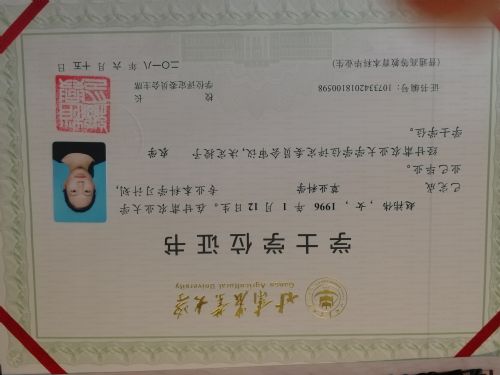 甘肃农业大学
Gansu Agricultural University
学士学位证书
赵祎伟 ,女, 1996 年 1 月 12 日生。在甘肃农业大学
草业科学 专业本科学习计划,
已完成
业已毕业。
经甘肃农业大学学位评定委员会审议,决定授予 农学
学士学位。
校 长
学位评定委员会主席
证书编号: 1073342018100598
二〇一八 年 六 月 十五 日
(普通高等教育本科毕业生)